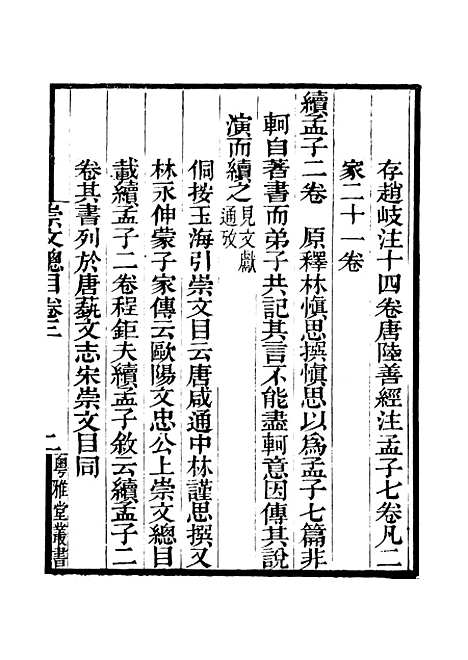 存趙岐注十四卷唐陸善經注孟子七卷凡二
家二十一卷
續孟子二卷　原釋林慎思撰慎思以爲孟子七篇非
軻自著書而弟子共記其言不能盡軻意因傳其說
演而續之見文獻通攷
侗按玉海引崇文目云唐咸通中林謹思撰又
林永伸蒙子家傳云歐陽文忠公上崇文總目
載續孟子二卷程鉅夫續孟子敘云續孟子二
卷其書列於唐藝文志宋崇文目同
崇文總目卷三
二
粵雅堂叢書